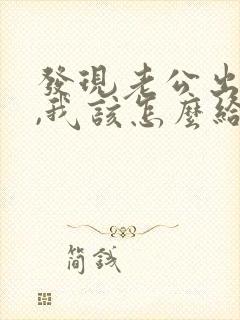 發現老公出
,我該怎麼給
簡錢